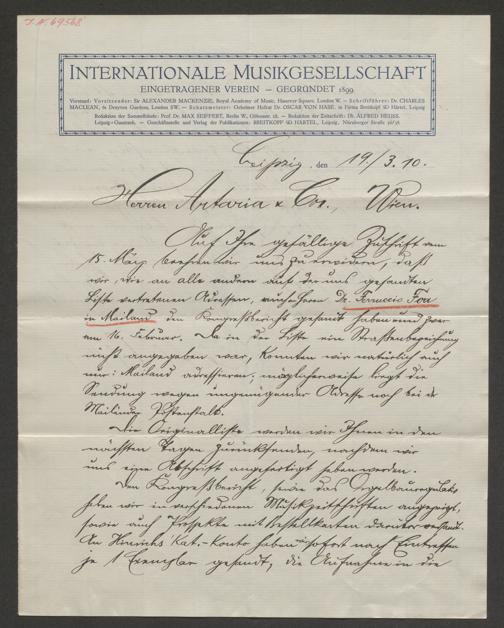 J.N. 69568
INTERNATIONALE MUSIKGESELLSCHAFT
EINGETRAGENER VEREIN – GEGRÜNDET 1899
Vorstand: Vorsitzender: Sir ALEXANDER MACKENZIE, Royal Academy of Music, Hanover Square, London W. – Schriftführer: Dr. CHARLES
MACLEAN, Dr. OSCAR VON HASE, in Firma Breitkopf & Härtel, Leipzig
Redaktion der Sammelbände: Prof. Dr. MAX SEIFFERT, Berlin W., – Redaktion der Zeitschrift: Dr. ALFRED HEUSS,
Leipzig – Geschäftsstelle und Verlag der Publikationen: BREITKOPF & HÄRTEL, Leipzig, Nürnberger Straße 36/38
Leipzig, den 19./3. 10.
Herren Artaria & Co., Wien.
Auf Ihre gefällige Zuschrift vom
15. März beehren wir uns zu erwidern, daß
wir, wie an alle andern auf der uns gesandten
Liste vertretenen Adressen, auch Herrn Dr. Ferruccio Foà
in Mailand den Kongreßbericht gesandt haben und zwar
am 16. Februar. Da in der Liste ein Straßenbezeichnung
nicht angegeben war, konnten wir natürlich auch
nur: Mailand adressieren; möglicherweise liegt die
Sendung wegen ungenügender Adresse noch bei der
Mailänder Poststelle.
Die Originalliste werden wir Ihnen in den
nächsten Tagen zurücksenden, nachdem wir
uns eine Abschrift angefertigt haben werden.
Den Kongreßbericht, sowie das Orgelbauregulativ
haben wir in verschiedenen Musikzeitschriften angezeigt,
sowie auch Prospekte mit Bestellkarten darüber versandt.
An Hinrichs Kat.-Konto haben wir sofort nach Eintreffen
je 1 Exemplar gesandt, die Aufnahme in die